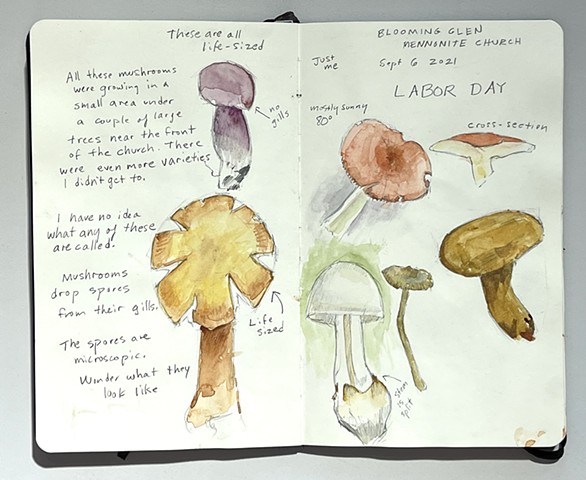 These are all
life-sized
All these mushrooms
were growing in a
small area under
a couple of large
trees near the front
of the church. There
were even more varieties
I didn't get to.
no
gills
I have no idea
what any of these
are called.
Mushrooms
drop spores
from their gills.
The spores are
microscopic.
Wonder what they
look like
Life
sized
BLOOMING GLEN
MENNONITE CHURCH
Just
me
Sept 6 2021
LABOR DAY
mostly sunny
80°
cross-section
stem
is
split